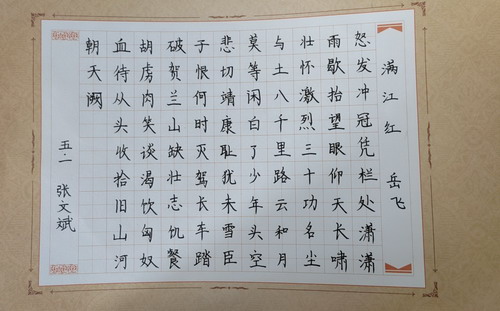 满江红 岳飞
怒发冲冠凭栏处潇潇
雨歇抬望眼仰天长啸
壮怀激烈三十功名尘
与土八千里路云和月
莫等闲白了少年头空
悲切靖康耻犹未雪臣
子恨何时灭驾长车踏
破贺兰山缺壮志饥餐
胡虏肉笑谈渴饮匈奴
血待从头收拾旧山河
朝天阙
五.二 张文斌